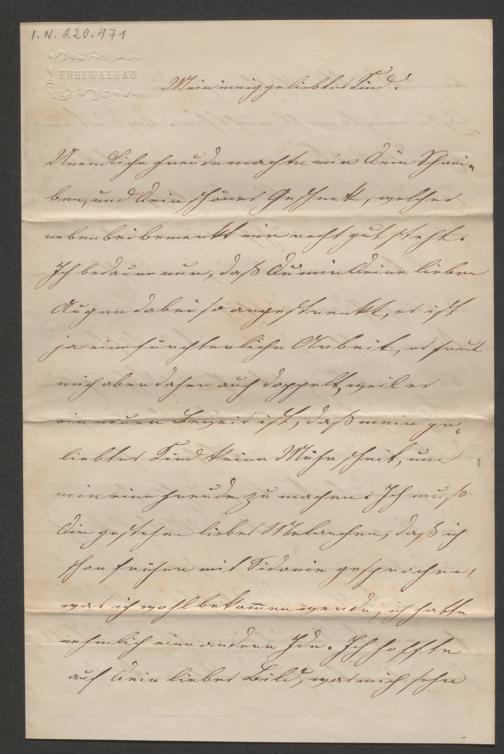 I.N. 220.471
FREIWALDAU
Mein innig geliebtes Kind!
Unendliche Freude machte mir Dein Schrei-
ben, und Dein schönes Geschenk, welches
nebenbei bemerkt mir recht gut steht.
Ich bedaure nur, daß Du mir Deine lieben
Augen dabei so angestrengt, es ist
ja eine fürchterliche Arbeit, es freut
mich aber daher auch doppelt, weil es
ein neuer Beweis ist, daß mein ge-
liebtes Kind keine Mühe scheut, um
mir eine Freude zu machen. Ich muß
Dir gestehen liebes Melanchen, daß ich
schon früher mit Sidonie gesprochen,
was ich wohl bekommen werde, ich hatte
nehmlich eine andere Idee. Ich hoffte
auf Dein liebes Bild, was mich sehr